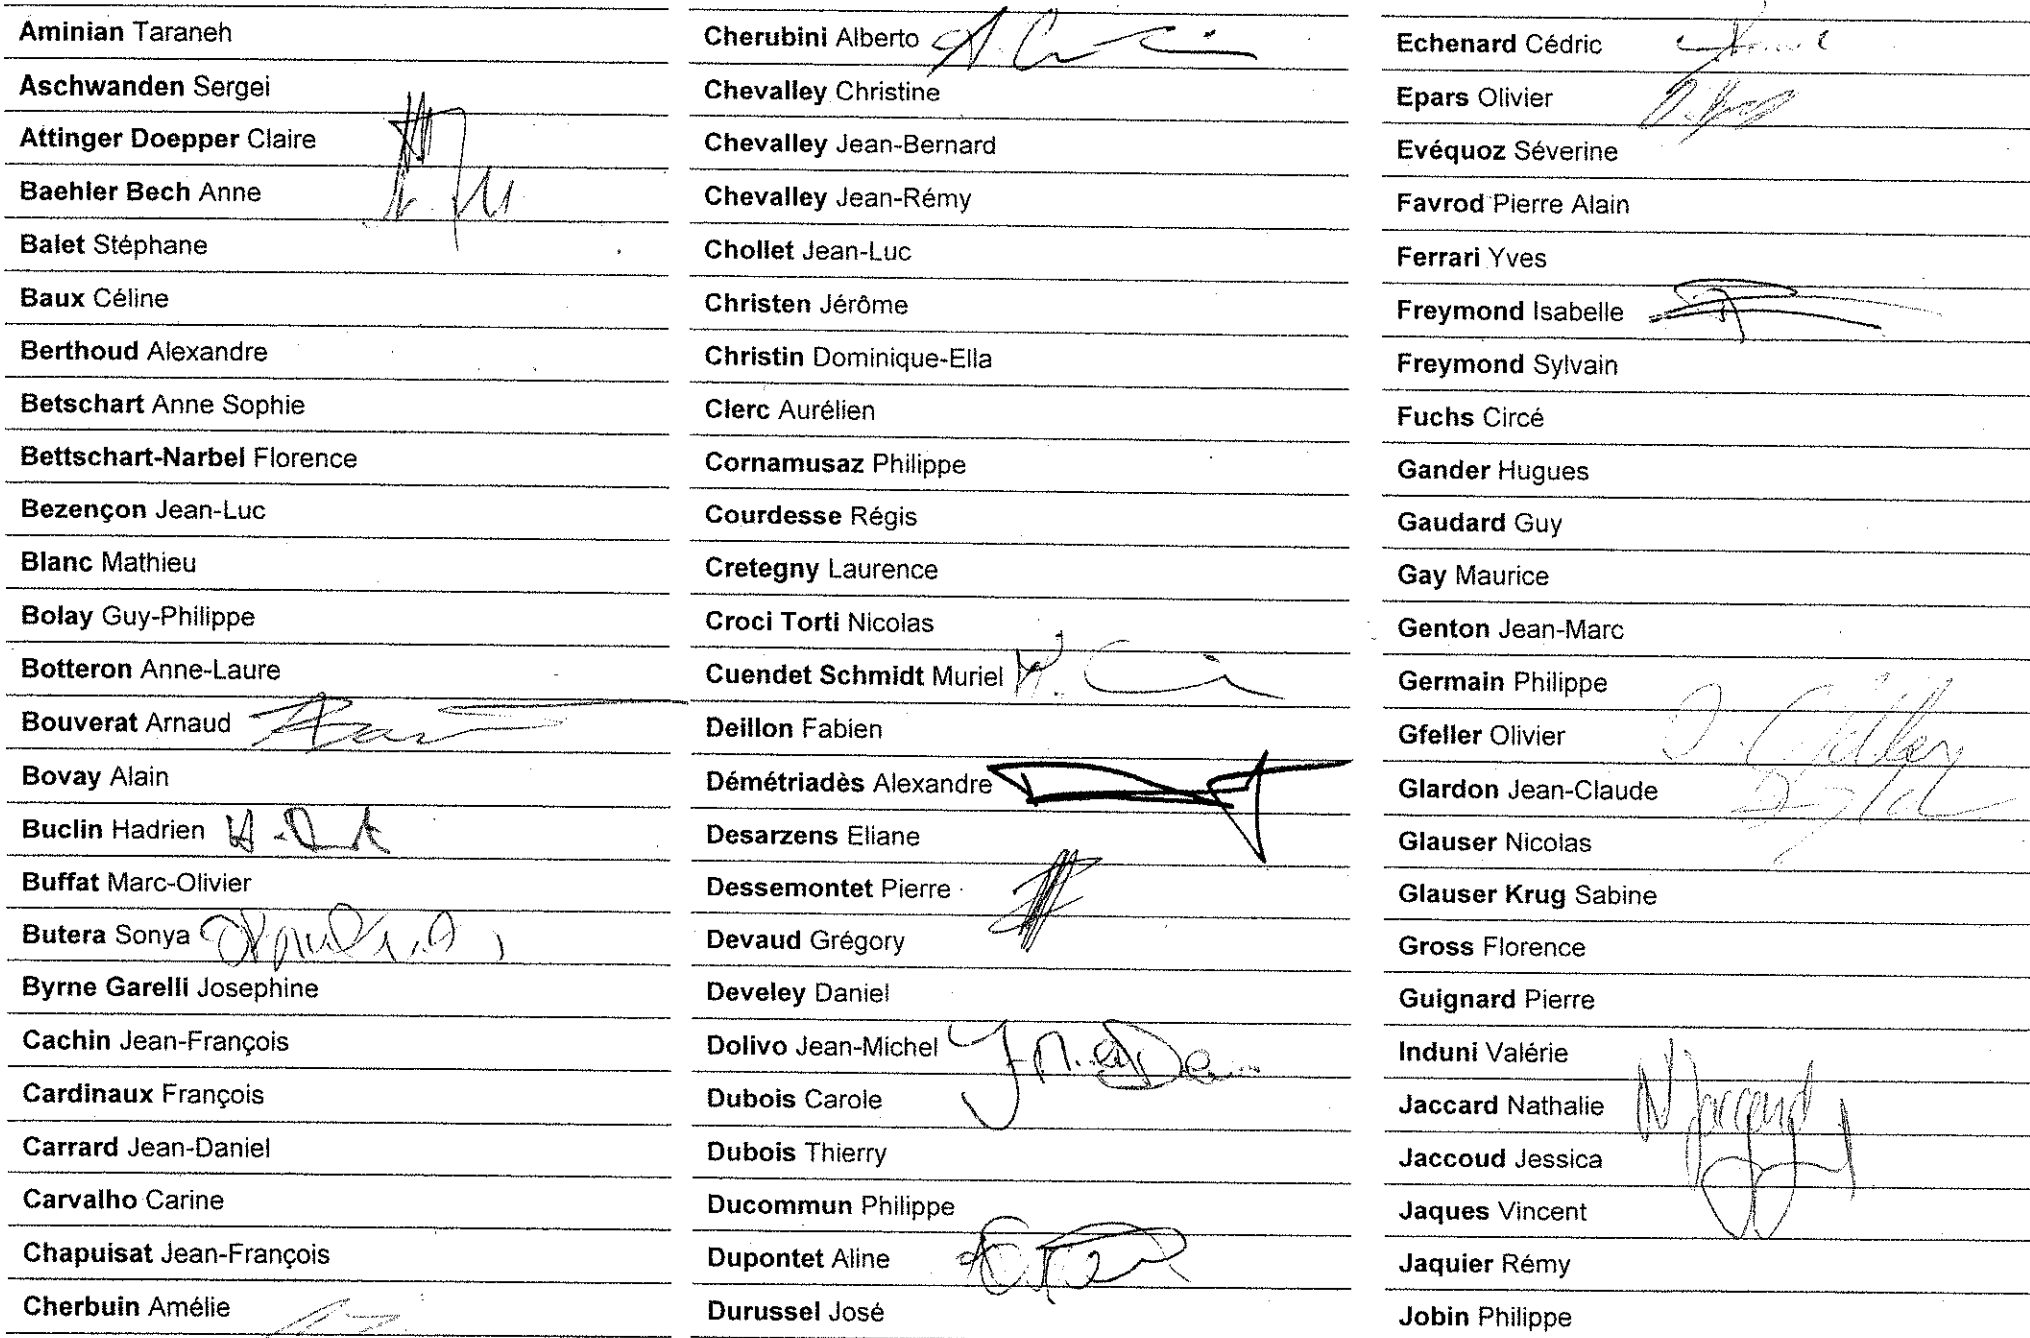 Aminian Taraneh
Aschwanden Sergei
Attinger Doepper Claire
Baehler Bech Anne
Balet Stéphane
Baux Céline
Berthoud Alexandre
Betschart Anne Sophie
Bettschart-Narbel Florence
Bezençon Jean-Luc
Blanc Mathieu
Bolay Guy-Philippe
Botteron Anne-Laure
Bouverat Arnaud
Bovay Alain
Buclin Hadrien
Buffat Marc-Olivier
Butera Sonya
Byrne Garelli Josephine
Cachin Jean-François
Cardinaux François
Carrard Jean-Daniel
Carvalho Carine
Chapuisat Jean-François
Cherbuin Amélie
Cherubini Alberto
Chevalley Christine
Chevalley Jean-Bernard
Chevalley Jean-Rémy
Chollet Jean-Luc
Christen Jérôme
Christin Dominique-Ella
Clerc Aurélien
Cornamusaz Philippe
Courdesse Régis
Cretegny Laurence
Croci Torti Nicolas
Cuendet Schmidt Muriel
Deillon Fabien
Démétriadès Alexandre
Desarzens Eliane
Dessemontet Pierre
Devaud Grégory
Develey Daniel
Dolivo Jean-Michel
Dubois Carole
Dubois Thierry
Ducommun Philippe
Dupontet Aline
Durussel José
Echenard Cédric
Epars Olivier
Evéquoz Séverine
Favrod Pierre Alain
Ferrari Yves
Freymond Isabelle
Freymond Sylvain
Fuchs Circé
Gander Hugues
Gaudard Guy
Gay Maurice
Genton Jean-Marc
Germain Philippe
Gfeller Olivier O. Gfeller
Glardon Jean-Claude
Glauser Nicolas
Glauser Krug Sabine
Gross Florence
Guignard Pierre
Induni Valérie
Jaccard Nathalie N Jaccard
Jaccoud Jessica
Jaques Vincent
Jaquier Rémy
Jobin Philippe